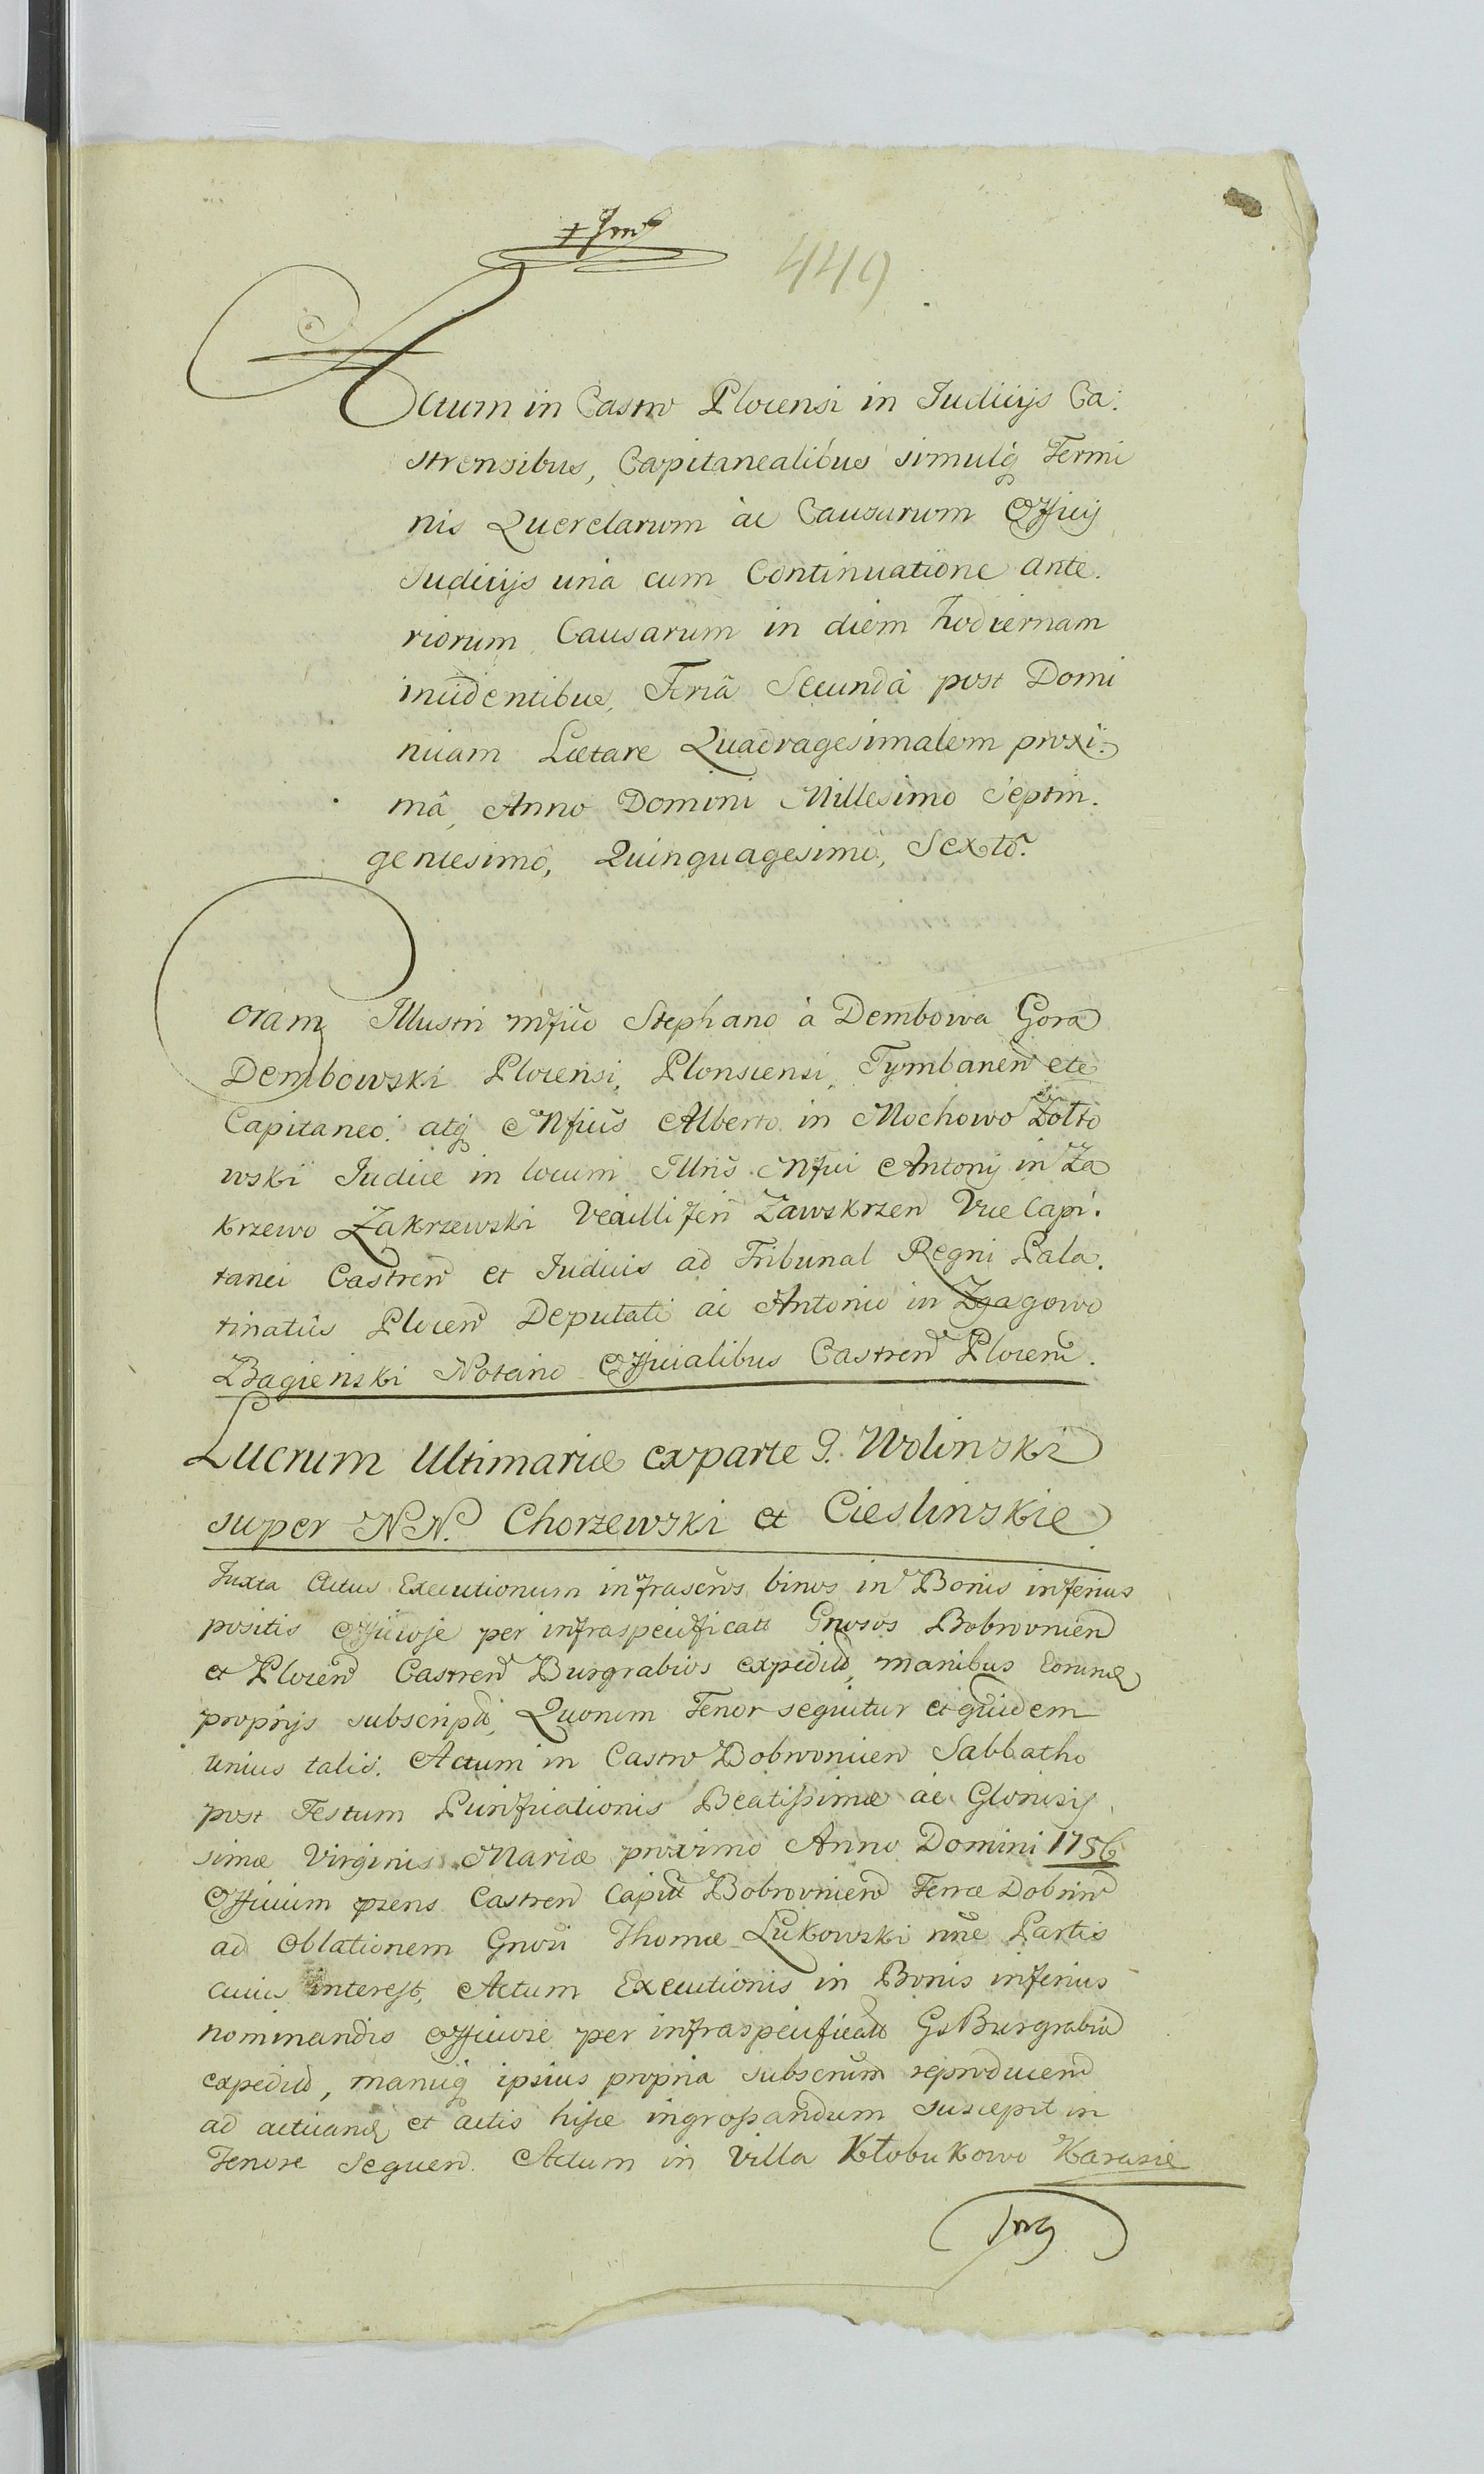 449
Actum in Castro Plocensi in Judicijs Ca:
strensibus, Capitanealibus simulq; Termi
nis Querelarum àc Causarum Officij
Judicijs unà cum Continuatione ante.
riorum Causarum in diem hodiernam
incidentibus, Feriâ Secundâ post Domi
nicam Lætare Quadragesimalem proxi:
mâ, Anno Domini Millesimo Septin.
gentesimô, Quinquagesimô, Sextô.
Coram Illustri mfico Stephano à Dembowa Gora
Dembowski Plocensi, Plonscensi, Tymbanen etc
Capitaneo. atq; Mficis Alberto in Mochowo Zołto
wski Judice in locum Illris Mfici Antonij in Za
krzewo Zakrzewski Vexilliferi Zawskrzen Vice Capi.
tanei Castren et Judicis ad Tribunal Regni Pala.
tinatûs Plocen Deputati ac Antonio in Zgagowo
Bagieński Notario Officialibus Castren Plocen.
Lucrum Ultimariæ ex parte G. Wolinski
super NN. Chorzewski et Cieslinskie
Juxta Actus Executionum infrascros binos in Bonis inferius
positis Officiose per infraspecificatt Gnosos Bobrovnien
et Plocen Castren Burgrabios expeditt, manibus Eorum
proprijs subscriptt, Quorum Tenor sequitur et quidem
unius talis. Actum in Castro Bobrovnicen Sabbatho
post Festum Purificationis Beatissimæ ac Gloriosis
simæ Virginis Mariæ proximo Anno Domini 1756
Officium præns Castren Capitt Bobrovnien Terræ Dobrin
ad Oblationem Gnosi Thomæ Łukowski nne Partis
cuius interest, Actum Executionis in Bonis inferius
nominandis Officiose per infraspecificatt Gs Burgrabiu
expeditt, manuq; ipsius propria subscrum reproducend
ad acticand et actis hisce ingrossandum suscepit in
Tenore Sequen. Actum in Villa Kłobukowo Karasie